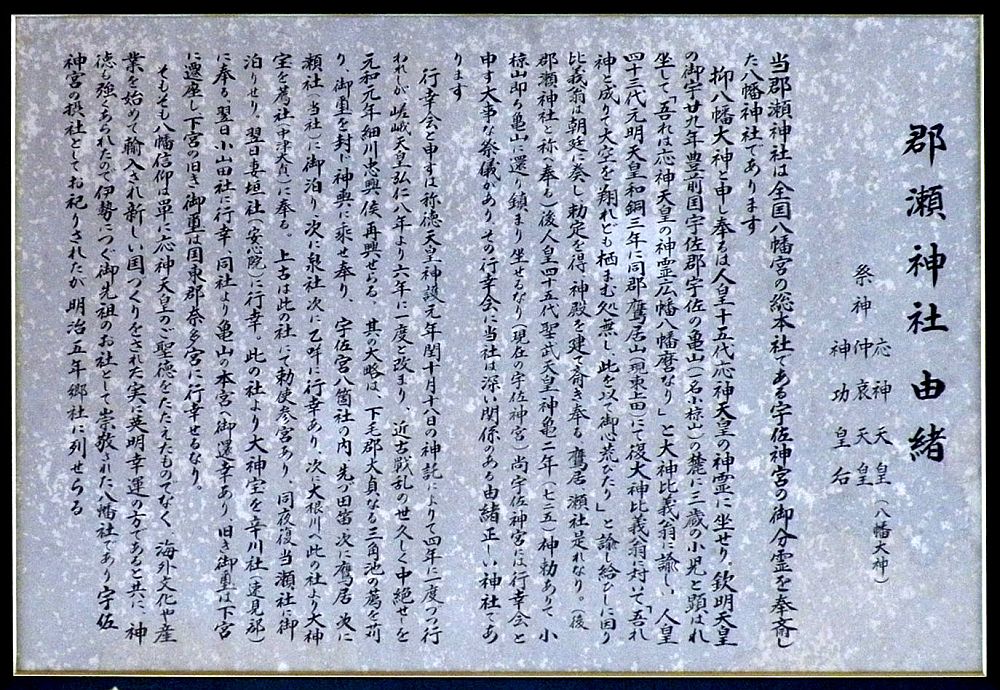 郡瀬神社由緒
祭神
応神天皇（八幡大神）
仲哀天皇
神功皇后
当郡瀬神社は全国八幡宮の総本社である宇佐神宮の御分霊を奉斎し
た八幡神社であります
抑八幡大神と申し奉るは人皇十五代応神天皇の神霊に坐せり。欽明天皇
の御宇廿九年豊前国宇佐郡宇佐の亀山（一名小椋山）の麓に三歳の小児と顕はれ
坐して「吾れは応神天皇の神霊広幡八幡麿なり」と大神比義翁に諭し、人皇
四十三代元明天皇和銅三年に同郡鷹居山（現東上田）にて復大神比義翁に対いて「吾れ
神と成りて大空を翔れども栖まむ処無し、此を以て御心荒びたり」と諭し給ひしに因り
比義翁は朝廷に奏し勅定を得、神殿を建て斎き奉る、鷹居瀬社是れなり。（後
郡瀬神社と称へ奉る）後人皇四十五代聖武天皇神亀二年（七二五）神勅ありて小
椋山即ち亀山に還り鎮まり坐せるなり（現在の宇佐神宮）尚宇佐神宮には行幸会と
申す大事な祭儀があり、その行幸会に当社は深い関係のある由緒正しい神社であ
ります
行幸会と申すは称徳天皇神護元年閏十月十八日の神託によりて四年に一度づつ行
われしが嵯峨天皇弘仁八年より六年に一度と改まり、近古戦乱の世久しく中絶せしを
元和元年細川忠興侯再興せらる、其の大略は、下毛郡大貞なる三角池の薦を苅
り、御璽を封じ神輿に乗せ奉り、宇佐宮八箇社の内、先づ田笛次に鷹居次に
瀬社（当社）に御泊り、次に泉社次に乙咩に行幸あり、次に大根川へ此の社より大神
宝を薦社（中津大貞）に奉る、上古は此の社にて勅使参宮あり、同夜復当瀬社に御
泊りせり、翌日妻垣社（安心院）に行幸。此の社より大神宝を辛川社（速見郡）
に奉る、翌日小山田社に行幸、同社より亀山の本宮へ御還幸あり旧き御璽は下宮
に遷座し、下宮の旧き御璽は国東郡奈多宮に行幸せるなり。
そもそも八幡信仰は単に応神天皇のご聖徳をたたえたものでなく、海外文化や産
業を始めて輸入され新しい国づくりをされた実に英明幸運の方であると共に、神
徳も強くあられたので伊勢につぐ御先祖のお社として崇敬された八幡社であり宇佐
神宮の摂社としてお祀りされたが明治五年郷社に列せらる